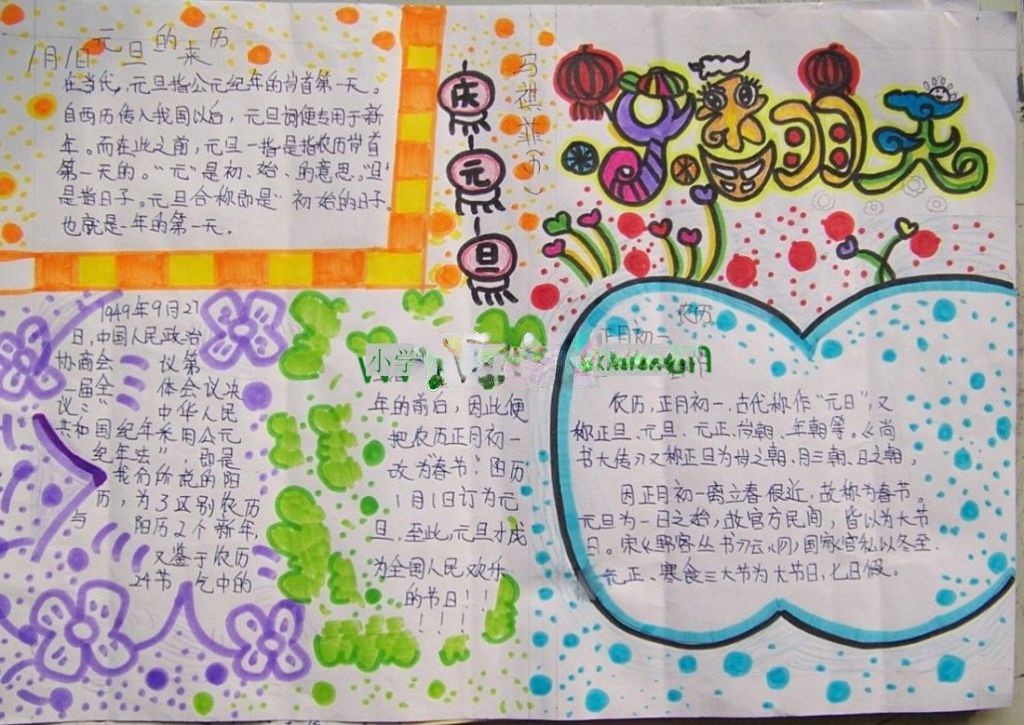 元旦的来历
1月1日
在当代，元旦指公元纪年的岁首第一天。
自西历传入我国以后，元旦一词便专用于新
年。而在此之前，元旦一指是指农历岁首
第一天的。“元”是初、始、的意思。“旦”
是指日子。元旦合称即是“初始的日子。
也就是一年的第一天。
庆元旦
1949年9月27
日，中国人民政治
协商会 议第
一届全 体会议决
议：“ 中华人民
共和国纪年采用公元
纪年法”，即是
我们所说的阳
历，为了区别农历
与 阳历2个新年，
又鉴于农历
24节 气中的
小学
年的前后，因此便
把农历正月初一
改为“春节”阳历
1月1日订为元
旦，至此，元旦才成
为全国人民欢乐
的节日！！
！！！
明天
农历
正月初一
农历，正月初一，古代称作“元日”，又
称正旦、元旦、元正、岁朝、年朝等。《尚
书大传》又称正旦为
因正月初一离立春很近，故称为春节。
元旦为一日之始，故官方民间，皆以为大节
日。宋《野客丛书》云，国家官私以冬至、
元正、寒食三大节为大节日，七日假。